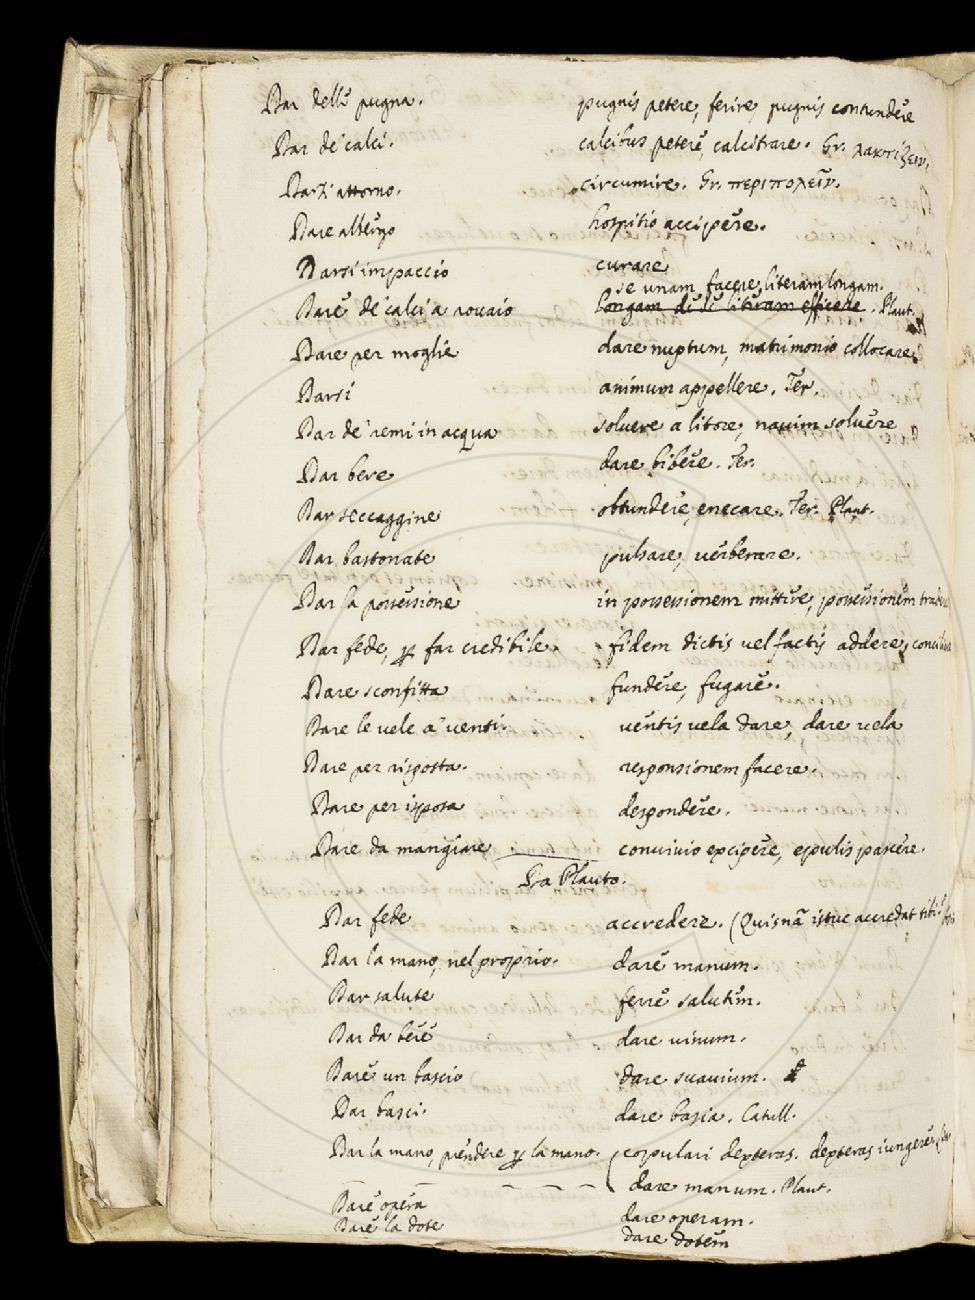 Dar delle pugna. pugnis petere, ferire, pugnis contundere
Dar de' calci. calcibus petere, calcitrare. Gr. λακτίζειν.
Darzi attorno. circumire. Gr. περιπολεῖν.
Dare albergo hospitio accipere.
Darsi impaccio curare
se unam facere literam longam.
Dare de' calci a rovaio longam literam efficere. Plaut.
Dare per moglie dare nuptum, matrimonio collocare.
Darsi animum appellere. Ter.
Dar de' remi in acqua solvere a litore, navim solvere
Dar bere dare bibere. Ter.
Dar seccaggine obtundere, enecare. Ter. Plaut.
Dar bastonate pulsare, verberare.
Dar la possessione in possessionem mittere, possessionem
Dar fede, far credibile. fidem dictis vel factis addere,
Dare sconfitta fundere, fugare.
Dare le vele a' venti. ventis vela dare, dare vela
Dare per risposta. responsionem facere.
Dare per isposa despondere.
Dare da mangiare convivio excipere, epulis pascere.
Da Plauto.
Dar fede accredere. (Quisnã istuc accredat tibi
Dar la mano, nel proprio. dare manum.
Dar salute ferre salutem.
Dar da bere dare vinum.
Dare un bascio dare suavium.
Dar basci. dare basia. Catull.
Dar la mano, prendere la mano. copulari dexteras. dexteras iungere
dare manum. Plaut.
Dare opera dare operam.
Dare la dote dare dotem